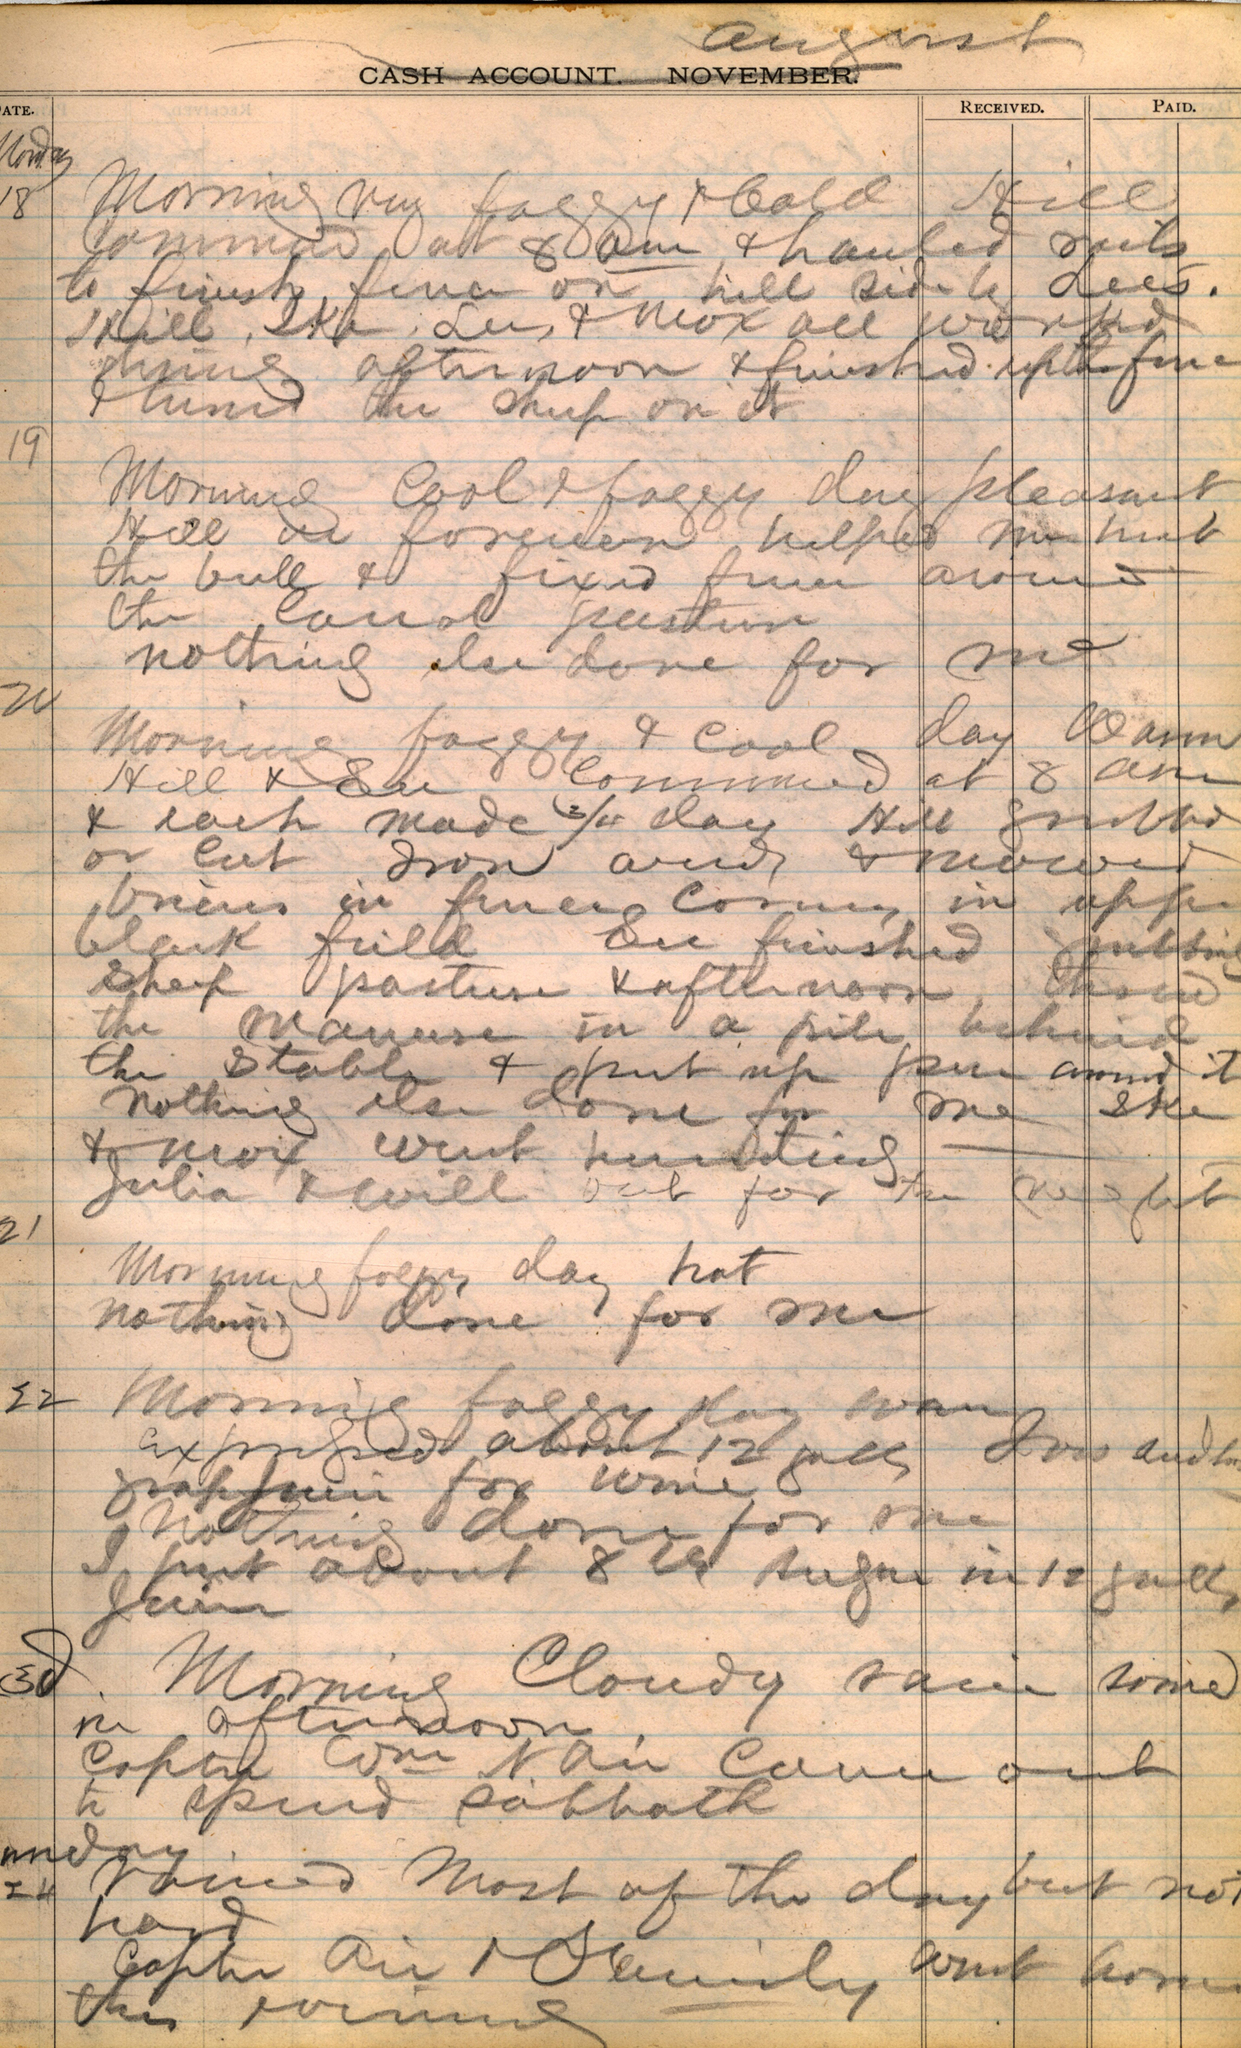 August
CASH ACCOUNT. NOVEMBER.
DATE. RECEIVED. PAID.
Monday
18 Morning very foggy & Cold Hill
commenced at 8 am & hauled rails
to finish fence on hill side by Lees.
Hill, Ike, Lee, & Mox all worked
during afternoon & finished up the fence
& turned the sheep on it
19
Morning Cool & foggy day pleasant
Hill in forenoon helped me hunt
the bull & fixed fence around
the Corral pasture
nothing else done for me
20
Morning foggy & Cool day Warm
Hill & Lee Commenced at 8 am
& each made 3/4 day Hill grubbed
or cut Iron weeds & mowed
briers in fence Corners in upper
black field Lee finished
sheep pasture & afternoon
the manure in a pile behind
the stable & put up pen around it
Nothing else done for me Ike
& Mox went hunting
Julia & Will out for the
21
Morning foggy day hot
nothing done for me
22 Morning foggy day warm
expressed about 12 galls Ives
grape juice for wine
Nothing done for me
I put about 8 lbs sugar in 12 galls
juice
23d. Morning Cloudy rain some
in afternoon
Captn Wm N Air Came out
to spend sabbath
Sunday
24 rained Most of the day but not
hard
Captn Air & Family went home
this evening